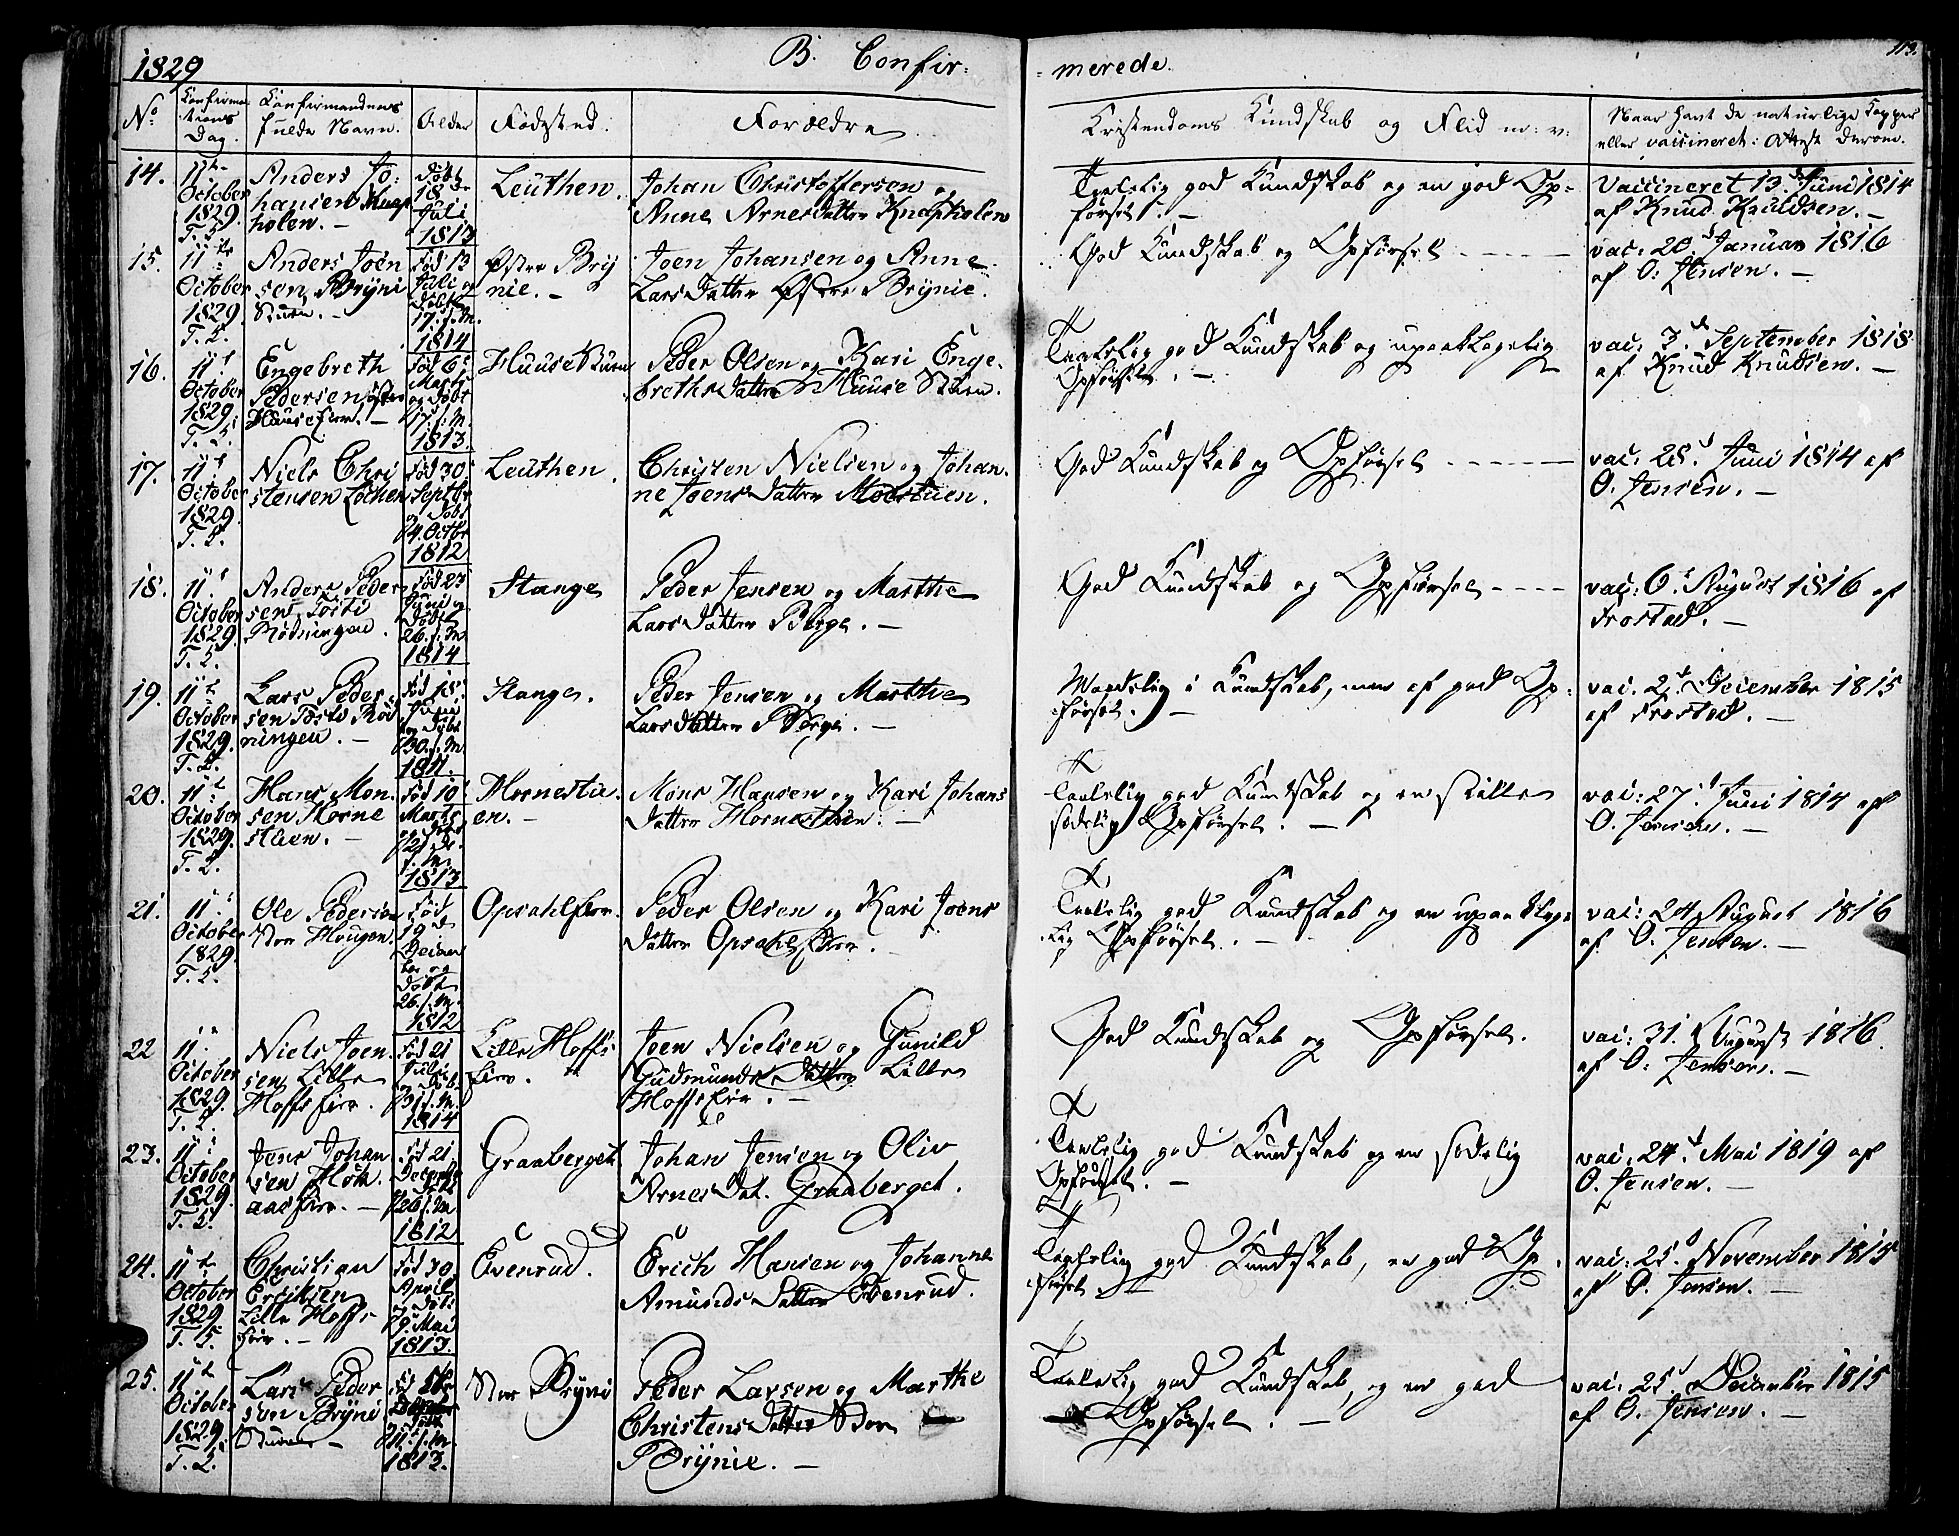 1829
B. Confir-
-merede.
113.
No.
Confirma-
tions
Dag.
Confirmandens
fulde Navn.
Alder
Fødested.
Forældre.
Kristendoms Kundskab og Flid m: v:
Naar havt de naturlige Kopper
eller vaccineret: Attest derom.
14.
11te
October
1829.
T. S.
Anders Jo-
hansen Knap
holen. –
døbt
18de
Juli
1813
Leuthen.
Johan Christoffersen og
Anne Arnesdatter Knapholen
Temmelig god Kundskab og en god Op-
førsel. –
Vaccineret 13. Juni 1814
af Knud Knudsen. –
15.
11te
October
1829.
T. S.
Anders Joen
sen Brÿni
Stuen. –
Fød 13
Juli og
døbt
17. s. M.
1814
Øster Brÿ
nie. –
Joen Johansen og Anne
Larsdatter Østre Brÿnie.
God Kundskab og Opførsel
vac: 20d Januar 1816
af O: Jensen. –
16.
11t
October
1829.
T. S.
Engebreth
Pedersen
Huuseeier. –
Fød 6
Marts
og døbt
17. s. M.
1813.
Huusestuen
Peder Olsen og Kari Enge-
brethsdatter Huusestuen.
god Kundskab og upaaklagelig
Opførsel. –
vac: 3d September 1818
af Knud Knudsen. –
17.
11t
October
1829.
T. S.
Niels Chri
stensen Løthen
Fød 30
Septbr
og døbt
4. Octbr
1812
Leuthen.
Christen Nielsen og Johan-
ne Joensdatter Moestuen.
God Kundskab og Opførsel
vac: 28d Juni 1814 af
O. Jensen. –
18.
11t
October
1829.
T. S.
Anders Peder
sen Tosti
Rødningen.
Fød 23
Juni og
døbt
26. s. M
1814
Stange
Peder Jensen og Marthe
Larsdatter Berge. –
God Kundskab og Opførsel
vac: 6t August 1816 af
Frostad. –
19.
11t
October
1829.
T. S.
Lars Peder
sen Tosti Rød
ningen. –
Fød 18
og døbt
30. s. M
1811.
Stange.
Peder Jensen og Marthe
Larsdatter Berge. –
Maadelig i Kundskab, men af god Op-
førsel. –
vac. 2d December 1815
af Frostad. –
20.
11t
October
1829.
T. S.
Hans Mon
sen Horne
stuen. –
Fød 10
Marts
og døbt
21de
s. M.
1813
Hornestu
en. –
Mons Hansen og Kari Johans
datter Hornestuen. –
god Kundskab og en stille
sædelig Opførsel. –
vac: 27d Juni 1814 af
O. Jensen. –
21.
11t
October
1829.
T. S.
Ole Pedersen
Stor Hougen.
Fød
19de
Decem
ber og
døbt
26. s. M.
1812
Opsahleier.
Peder Olsen og Kari Joens
datter Opsahleier.
god Kundskab og en upaaklage-
lig Opførsel. –
vac: 24 August 1816
af O. Jensen. –
22
11t
October
1829.
T. S.
Niels Joen
sen Lille
Hoffseier.
Fød 21
Juli
og døbt
31. s. M
1814
Lille Hoffs-
eier.
Joen Nielsen og Gunild
Gudmundsdatter Lille
Hoffseier. –
God Kundskab og Opførsel.
vac: 31. August 1816.
af O: Jensen. –
23.
11t
October
1829.
T. S.
Jens Johan
sen Høk
aaseier. –
Fød 21
Decembr
26. s. M
1812
Graaberget
Johan Jensen og Oliv
Arnesdat. Graaberget.
god Kundskab og en sædelig
Opførsel. –
vac: 24d Mai 1819 af
O. Jensen. –
24.
11t
October
1829
T. S.
Christian
Ericksen
Lille Hoffs
eier. –
Fød 30
April
og døbt
9. Mai
1813.
Evenrud.
Erich Hansen og Johanne
Amundsdatter Evenrud.
god Kundskab, en god Op-
førsel. –
vac: 25d November 1815
af O. Jensen. –
25.
11t
October
1829.
T. S.
Lars Peder
sen Brÿni
Stuen –
1813.
Stor Brÿni
Peder Larsen og Marthe
Christensdatter Stor
Brÿnie. –
god Kundskab, og en god
Opførsel. –
vac: 25d December 1815
af O. Jensen. –